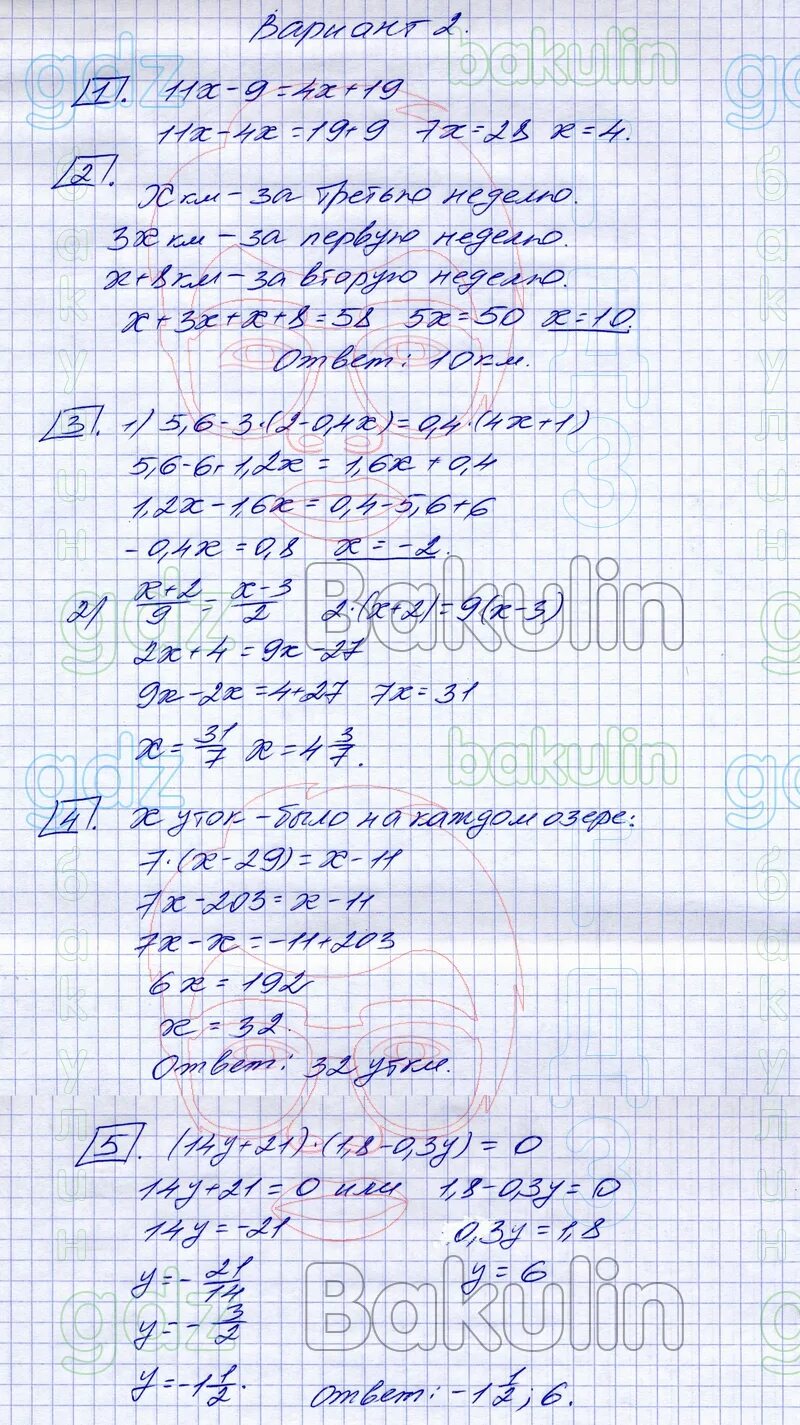 Вариант 2.
1. 11x-9=4x+19
11x-4x=19+9 7x=28 x=4.
2.
x км - за третью неделю.
3x км - за первую неделю.
x+8км - за вторую неделю.
x+3x+x+8=58 5x=50 x=10.
Ответ: 10км.
3. 1) 5,6-3·(2-0,4x)=0,4·(4x+1)
5,6-6+1,2x=1,6x+0,4
1,2x-1,6x=0,4-5,6+6
-0,4x=0,8 x=-2.
2) x+2/9=x-3/2 2·(x+2)=9(x-3)
2x+4=9x-27
9x-2x=4+27 7x=31
x=31/7 x=4 3/7.
4. x уток - было на каждом озере:
7·(x-29)=x-11
7x-203=x-11
7x-x=-11+203
6x=192
x=32.
Ответ: 32 утки.
5. (14y+21)·(1,8-0,3y)=0
14y+21=0 или 1,8-0,3y=0
14y=-21 0,3y=1,8
y=-21/14 y=6
y=-3/2
y=-1 1/2. Ответ: -1 1/2; 6.
gdz
bakulin
gdz
бакулин
ГДЗ
gdz Bakulin
gdz
bakulin
gdz
бакулин
ГДЗ
gdz Bakulin